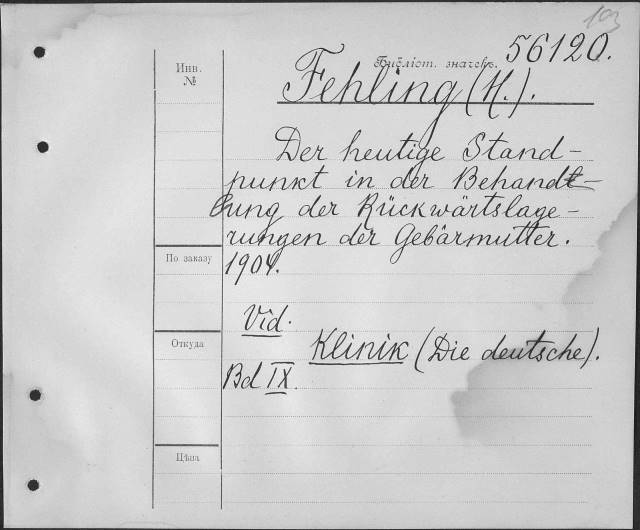 103
Библіот. значекъ. 56120.
Инв.
№
Fehling (H.).
Der heutige Stand-
punkt in der Behand-
lung der Rückwärtslage-
rungen der Gebärmutter.
По заказу
1904.
Vid.
Откуда
Klinik (Die deutsche).
Bd IX.
Цѣна